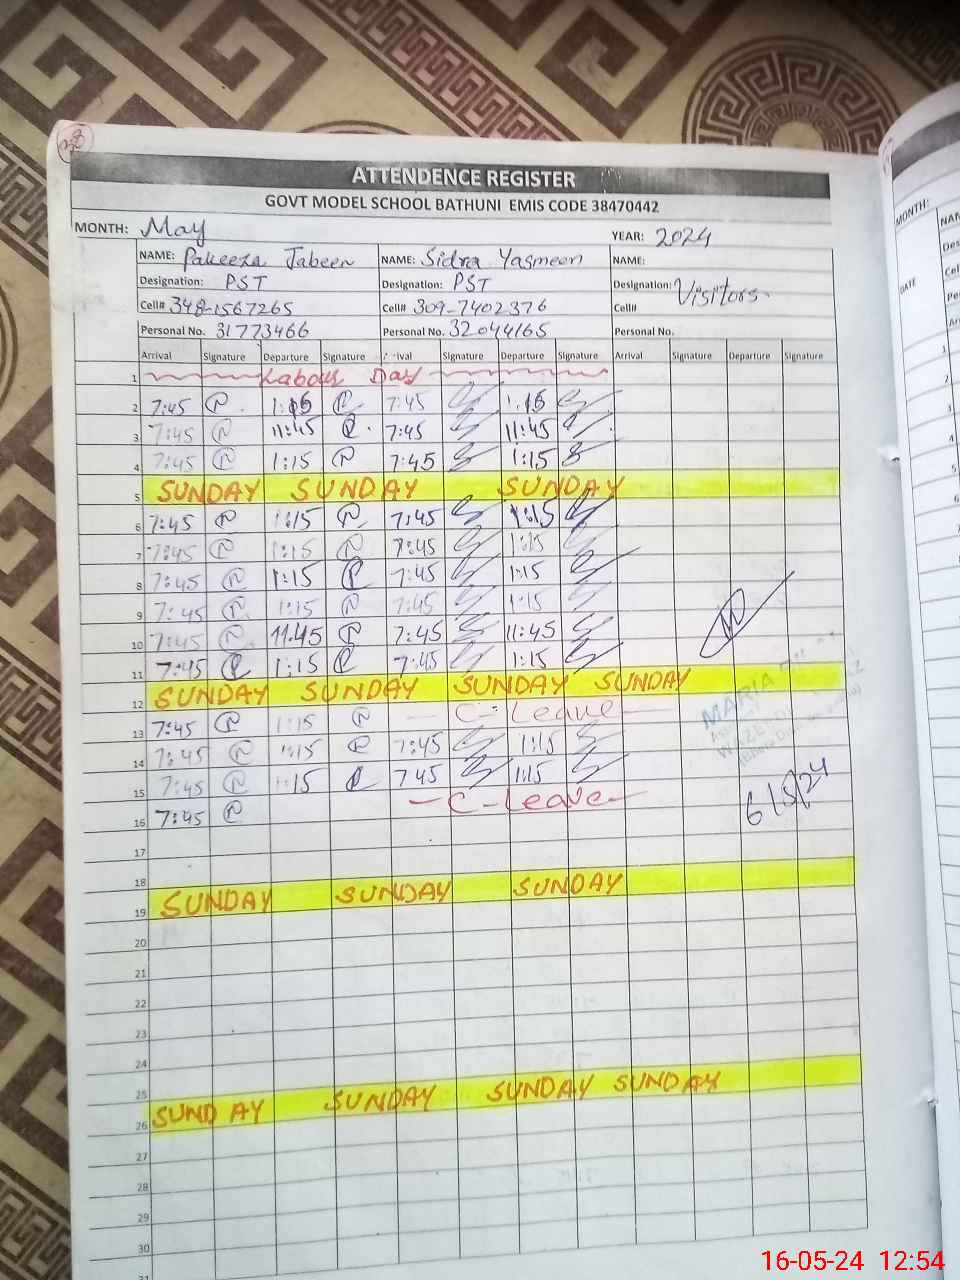 38
ATTENDENCE REGISTER
GOVT MODEL SCHOOL BATHUNI EMIS CODE 38470442
MONTH: May YEAR: 2024
NAME: Pakeeza Jabeen NAME: Sidra Yasmeen NAME:
Designation: PST Designation: PST Designation: Visitors.
Cell# 348-1567265 Cell# 309-7402376 Cell#
Personal No. 31773466 Personal No. 32044165 Personal No.
Arrival Signature Departure Signature Arrival Signature Departure Signature Arrival Signature Departure Signature
1 Labour Day
2 7:45 1:15 7:45 1:15
3 7:45 11:45 7:45 11:45
4 7:45 1:15 7:45 1:15
5 SUNDAY SUNDAY SUNDAY
6 7:45 1:15 7:45 1:15
7 7:45 1:15 7:45 1:15
8 7:45 1:15 7:45 1:15
9 7:45 1:15 7:45 1:15
10 7:45 11.45 7:45 11:45
11 7:45 1:15 7:45 1:15
12 SUNDAY SUNDAY SUNDAY SUNDAY
13 7:45 1:15 C-Leave
14 7:45 1:15 7:45 1:15
15 7:45 1:15 7 45 1:15
16 7:45 C-Leave
MARIA
6/5/24
17
18
19 SUNDAY SUNDAY SUNDAY
20
21
22
23
24
25
26 SUNDAY SUNDAY SUNDAY SUNDAY
27
28
29
30
31
MONTH:
DATE
16-05-24 12:54